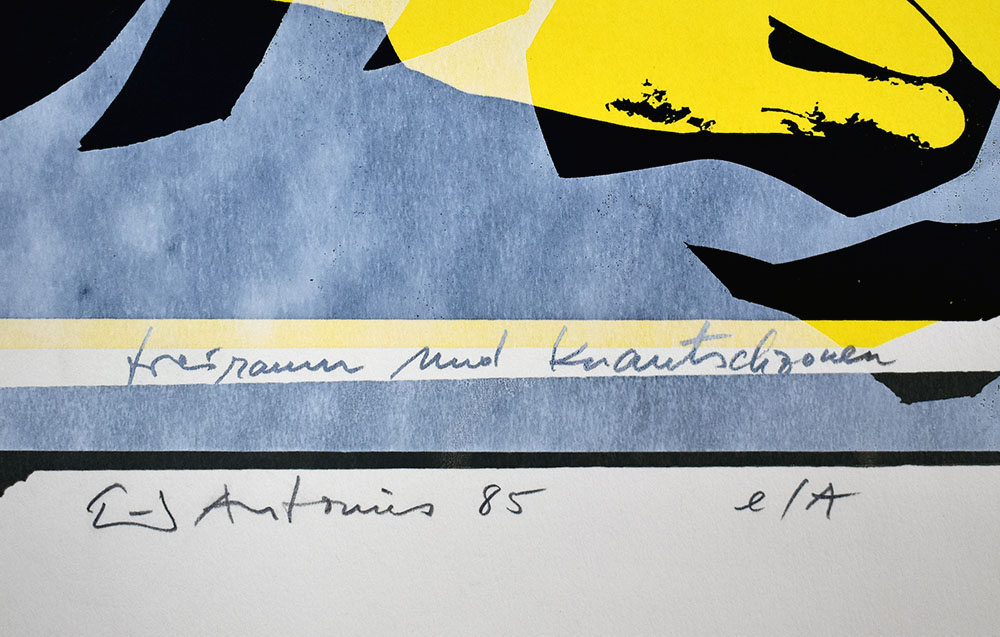 freiraum und Knautschzonen
Antonius 85 e/A